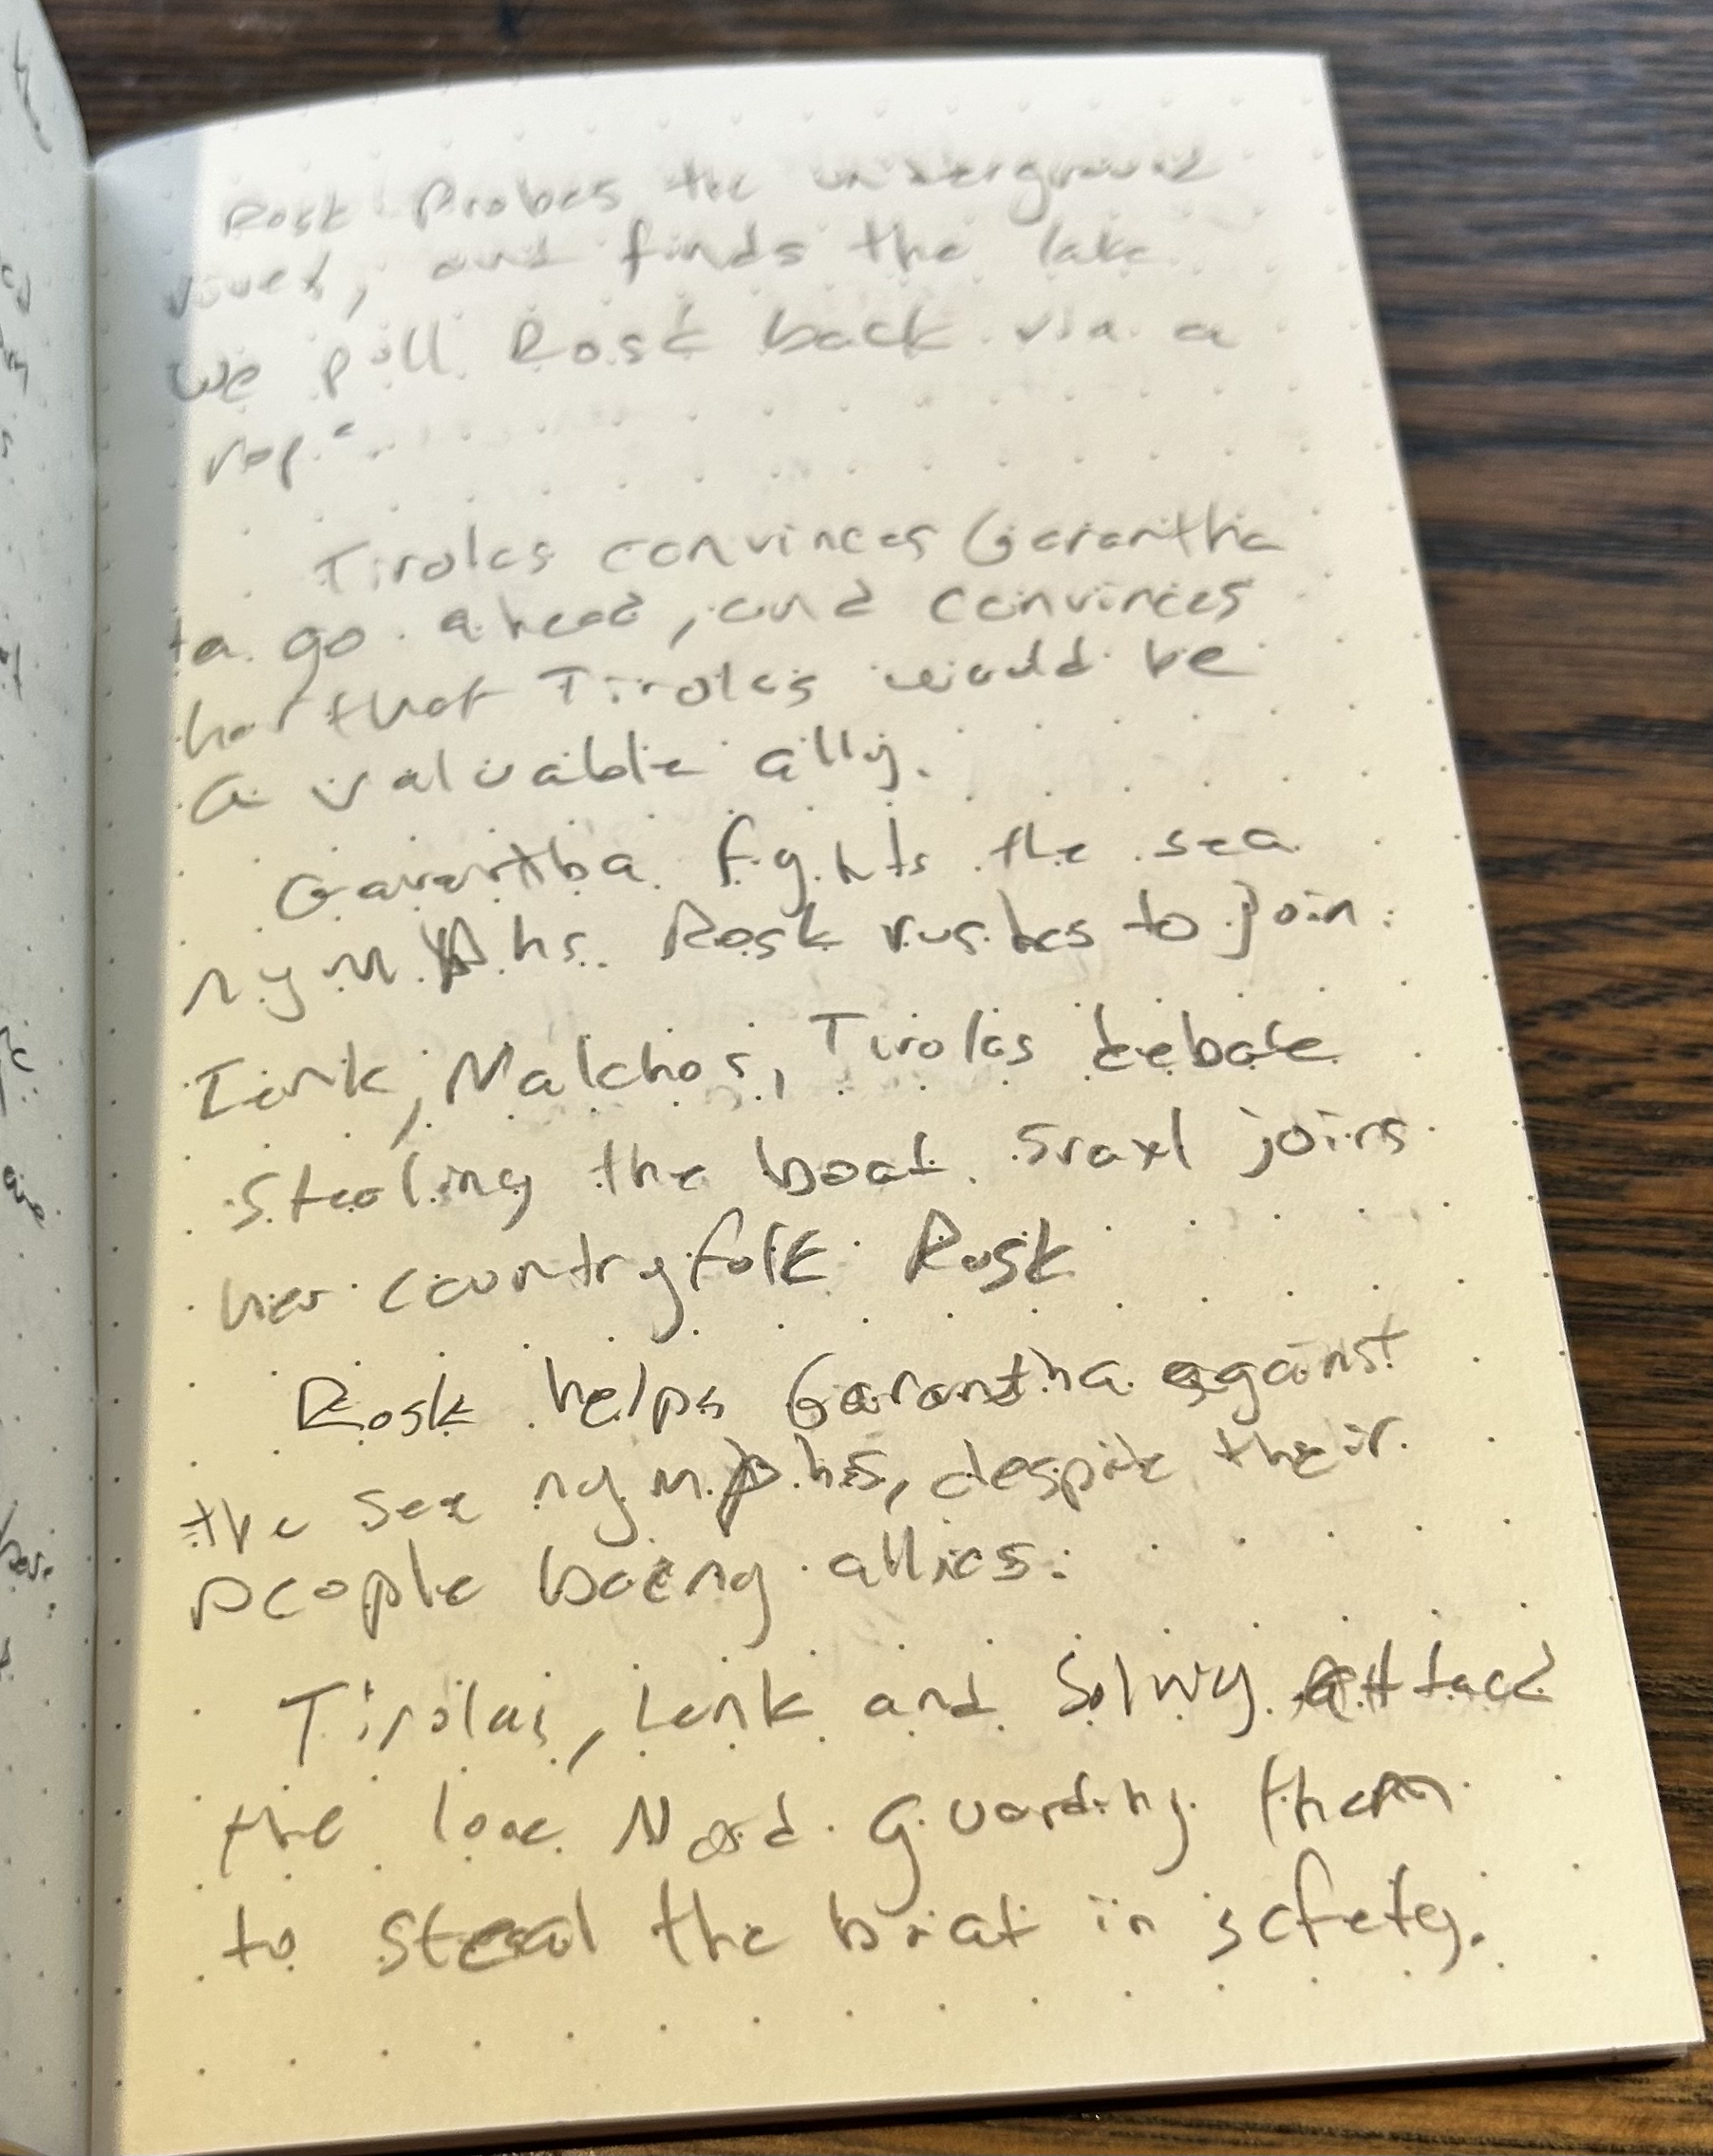 Rosk Probes the underground
river, and finds the lake
we pull Rosk back via a
rope
Tirolas convinces Garantha
to go ahead, and convinces
her that Tirolas would be
a valuable ally.
Garantha fights the sea
nymphs. Rosk rushes to join.
Lenk, Malchos, Tirolas debate
stealing the boat. Sraxl joins
her countryfolk Rosk
Rosk helps Garantha against
the sea nymphs, despite their
people being allies.
Tirolas, Lenk and Solwy attack
the lone guarding them
to steal the boat in safety.